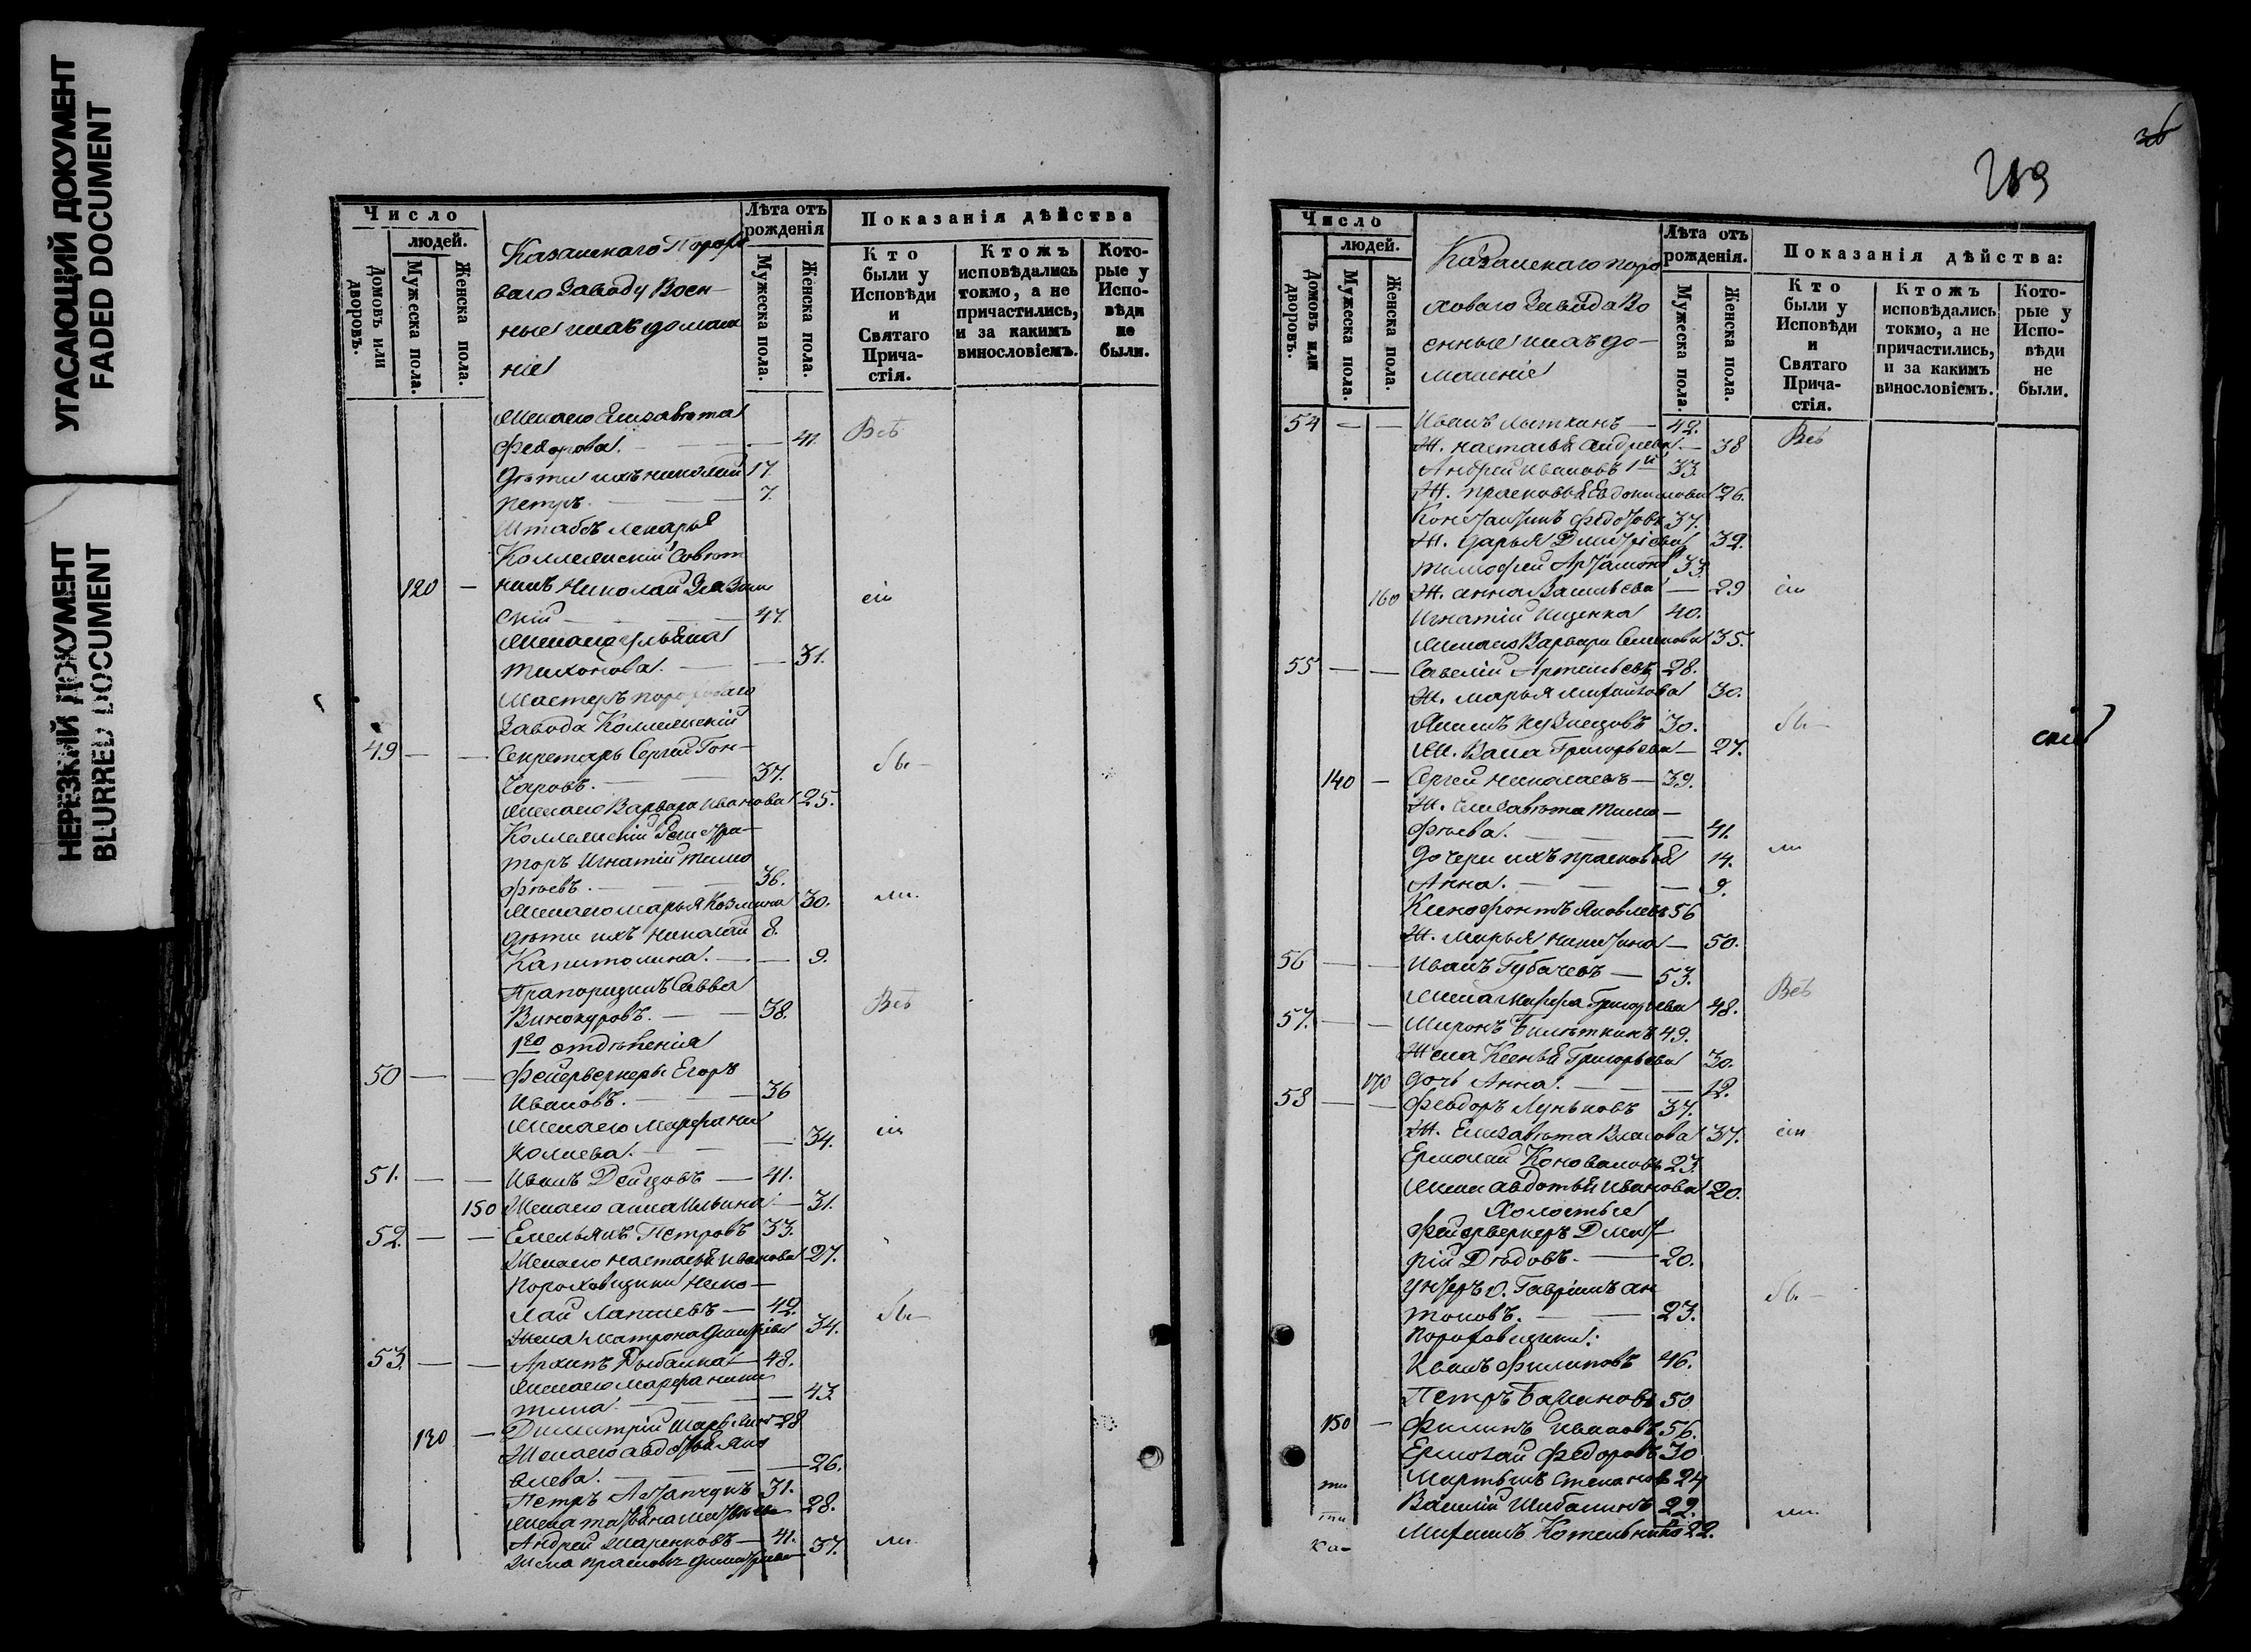 УГАСАЮЩИЙ ДОКУМЕНТ
FADED DOCUMENT
НЕРЕЗКИЙ ДОКУМЕНТ
BLURRED DOCUMENT
Число
людей.
Домовъ или дворовъ.
Мужеска пола.
Женска пола.
Казанскаго Порохо
ваго Заводу Воен-
ные и ихъ домаш
ніе
Лѣта отъ рожденія
Мужеска пола.
Женска пола.
Показанія дѣйства
Кто были у Исповѣди и Святаго Прича-стія.
Ктожъ исповѣдались токмо, а не причастились, и за какимъ винословіемъ.
Кото-рые у Испо-вѣди не были.
Жена его Елизавета
Федорова. — 41. Всѣ
Дѣти ихъ Николай 17
Петръ — 7.
Штабъ лекарь
Коллежскій Совѣт
120 — никъ Николай сіи
скій — 47.
Жена его Ульяна
Тихонова. — 31.
Мастеръ пороховаго
Завода Коллежскій
49 — — Секретарь Сергей Гон-
чаровъ. — 37. бы-
Жена его Варвара Иванова 25.
Коллежскій Регистра-
торъ Игнатій Тимо
фѣевъ. — 36.
Жена его Марья Козмина 30. ли.
Дѣти ихъ Николай 8.
Капитолина. — 9.
Прапорщикъ Савва
Винокуровъ. — 38. Всѣ
1го отдѣленія
50 — — Фейерверкеръ Егоръ
Ивановъ. — 36
Жена его Марфа Ни
колаева. — 34. сіи
51. — — Иванъ Дейцовъ — 41.
150 Жена его Анна Ильина — 31.
52. — — Емельянъ Петровъ 33.
Жена его Настасья Иванова 27.
Пороховщики Нико-
лай Лапшевъ — 42. бы-
Жена Матрона Дмитріева 34.
53. — — Архипъ Рыбалка — 48.
Жена его Марфа Ники
тина. — 43
130 — Димитрій 28
Жена его Авдотья Яко
влева. — 26.
Петръ 31.
Жена Татьяна 28.
Андрей Шаренковъ — 41. ли.
Жена Прасковья Димитріева 37.
36
Число
людей.
Домовъ или дворовъ.
Мужеска пола.
Женска пола.
Казанскаго поро
ховаго Завода Во
енные и ихъ до-
машніе
Лѣта отъ рожденія.
Мужеска пола.
Женска пола.
Показанія дѣйства:
Кто были у Исповѣди и Святаго Прича-стія.
Ктожъ исповѣдались токмо, а не причастились, и за какимъ винословіемъ.
Кото-рые у Испо-вѣди не были.
54 — — Иванъ Лыткинъ — 42.
Ж. Настасья Андреева — 38 Всѣ
Андрей Ивановъ 1й 33
Ж. Прасковья Евдокимова 26.
Константинъ Федотовъ 37.
Ж. Дарья Дмитріева 32.
Тимофей Артамоновъ 33
160 Ж. Анна Васильева — 29 сіи
Игнатій Ищенка 40.
Жена его Варвара Семенова 35.
55 — — Савелій Артемьевъ 28.
Ж. Марья Михайлова 30.
Якимъ Кузнецовъ 30. бы-
Ж. Васса Григорьева — 27.
скій
140 — Сергей Николаевъ — 39.
Ж. Елизавета Тимо-
фѣева. — 41.
Дочери ихъ Прасковья 14. ли
Анна. — 9.
Ксенофонтъ Яковлевъ 56
Ж. Марья Никитина — 50.
56 — — Иванъ Губачевъ — 53.
Жена Марфа Григорьева 48. Всѣ
57. — — Миронъ Билеткинъ 49.
Жена Ксенья Григорьева 30.
170 дочь Анна. — 12.
58 — — Феодоръ Луньковъ 37.
Ж. Елизавета Власова 37. сіи
Ермолай Коноваловъ 23.
Жена Авдотья Иванова 20.
Холостые
Фейерверкеръ Дмит
рій Дѣдовъ. — 20.
Унтеръ о. Гавріилъ Ан
тоновъ. — 23. бы-
Пороховщики:
Иванъ Филиповъ 46.
Петръ 50
150 — Филипъ Ивановъ 56.
Ермолай Федоровъ 30
Мартынъ Степановъ 24
Василій Шибалинъ 22. ли.
Михаилъ Котельников 22.